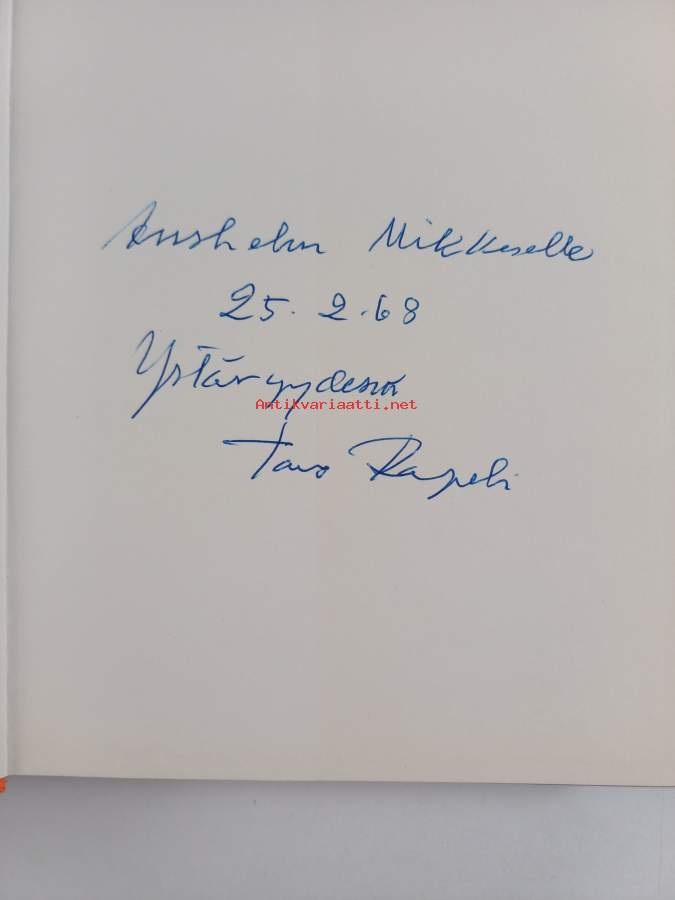 Anshelm Mikkeselle
25.2.68
Ystävyydessä
Antikvariaatti.net
Tavo Rapeli